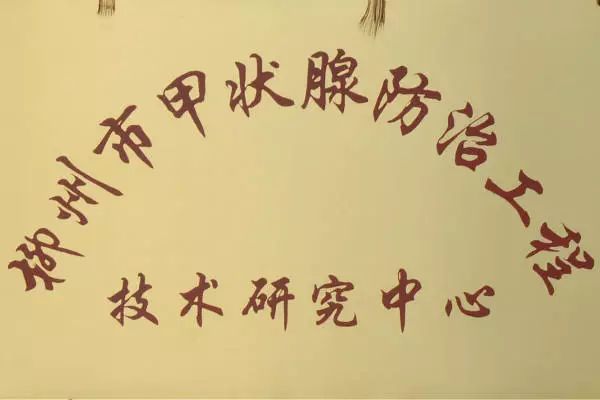 柳州市甲状腺防治工程
技术研究中心